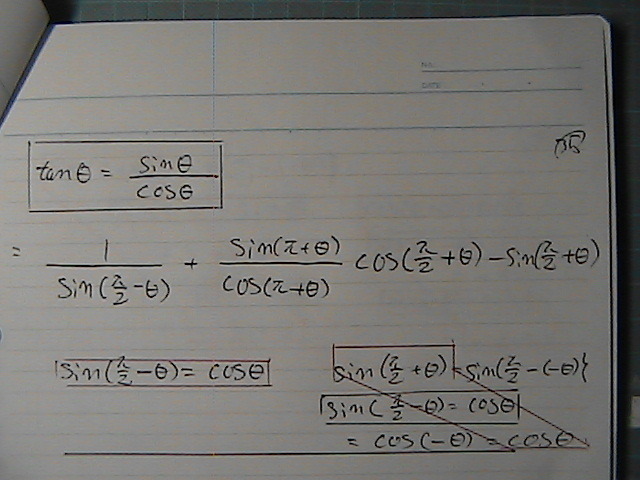 NO.
DATE
tanθ = sinθ/cosθ
= 1/sin(π/2-θ) + sin(π+θ)/cos(π+θ) cos(π/2+θ)-sin(π/2+θ)
sin(π/2-θ)= cosθ
sin(π/2+θ)=sin(π/2-(-θ)}
sin(π/2-θ)= cosθ
= cos(-θ) = cosθ